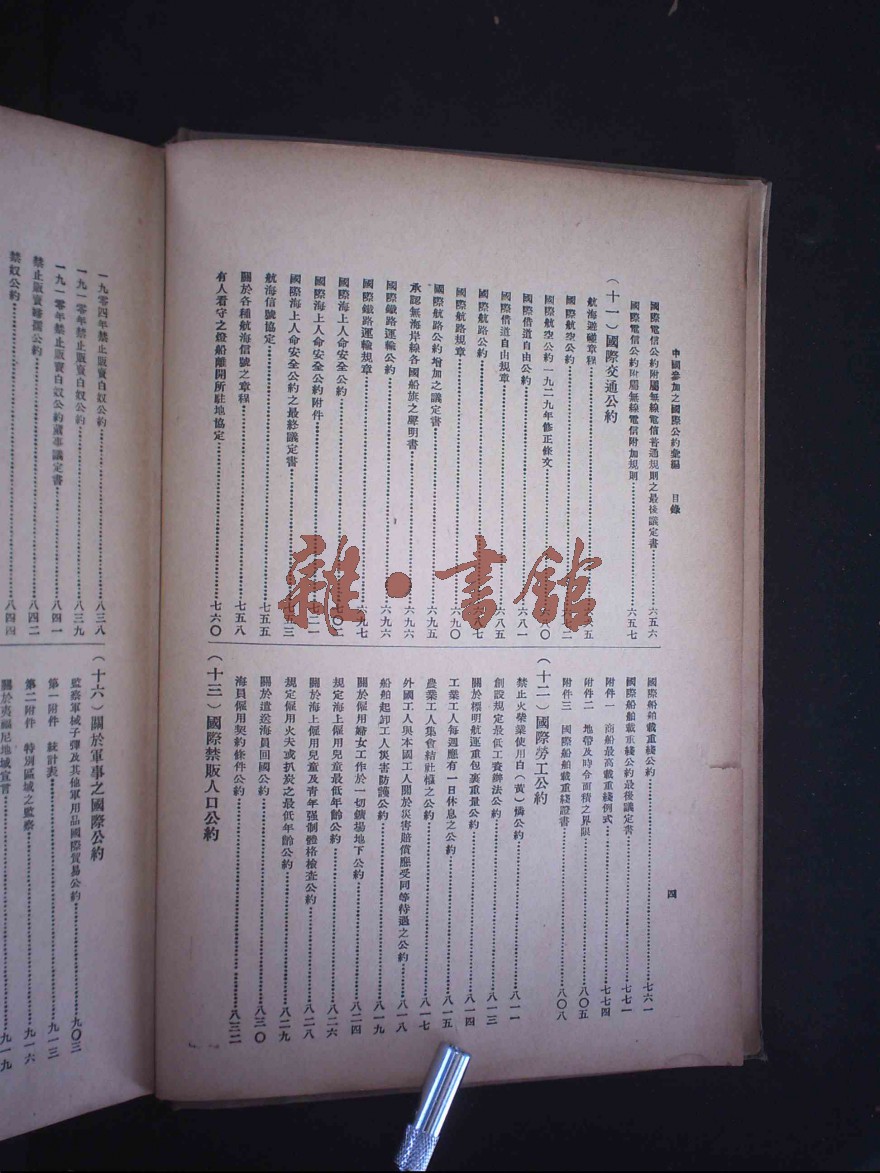 中國參加之國際公約彙編　目錄
四
國際電信公約附屬無線電信普通規則之最後議定書 六五六
國際電信公約附屬無線電信附加規則 六五七
(十一)國際交通公約
航海避碰章程
國際航空公約
國際航空公約一九二九年修正條文
國際借道自由公約 六八一
國際借道自由規章
國際航路公約
國際航路規章 六九〇
國際航路公約增加之議定書 六九五
承認無海岸線各國船旗之聲明書 六九六
國際鐵路運輸公約 六九六
國際鐵路運輸規章 六九七
國際海上人命安全公約
國際海上人命安全公約附件
國際海上人命安全公約之最終議定書
航海信號協定 七五五
關於各種航海信號之章程 七五八
有人看守之燈船離開所駐地協定 七六〇
國際船舶載重綫公約 七六一
國際船舶載重綫公約最後議定書 七七一
附件一　商船最高載重綫例式 七七四
附件二　地帶及時令面積之界限 八〇五
附件三　國際船舶載重綫證書 八〇八
(十二)國際勞工公約
禁止火柴業使用白(黃)燐公約 八一一
創設規定最低工資辦法公約 八一三
關於標明航運重包裹重量公約 八一四
工業工人每週應有一日休息之公約 八一五
農業工人集會結社權之公約 八一七
外國工人與本國工人關於災害賠償應受同等待遇之公約 八一八
船舶起卸工人災害防護公約 八一九
關於僱用婦女工作於一切鑛場地下公約 八二四
規定海上僱用兒童最低年齡公約 八二六
關於海上僱用兒童及青年强制體格檢查公約 八二八
規定僱用火夫或扒炭之最低年齡公約 八二九
關於遣送海員回國公約 八三〇
海員僱用契約條件公約 八三二
(十三)國際禁販人口公約
一九〇四年禁止販賣白奴公約 八三八
一九一〇年禁止販賣白奴公約 八三九
一九一〇年禁止販賣白奴公約蕆事議定書 八四一
禁止販賣婦孺公約 八四二
禁奴公約 八四四
(十六)關於軍事之國際公約
監察軍械子彈及其他軍用品國際貿易公約 九〇三
第一附件　統計表 九一三
第二附件　特別區域之監察 九一六
關於夷福尼地域宣言 九一九
雜·書館